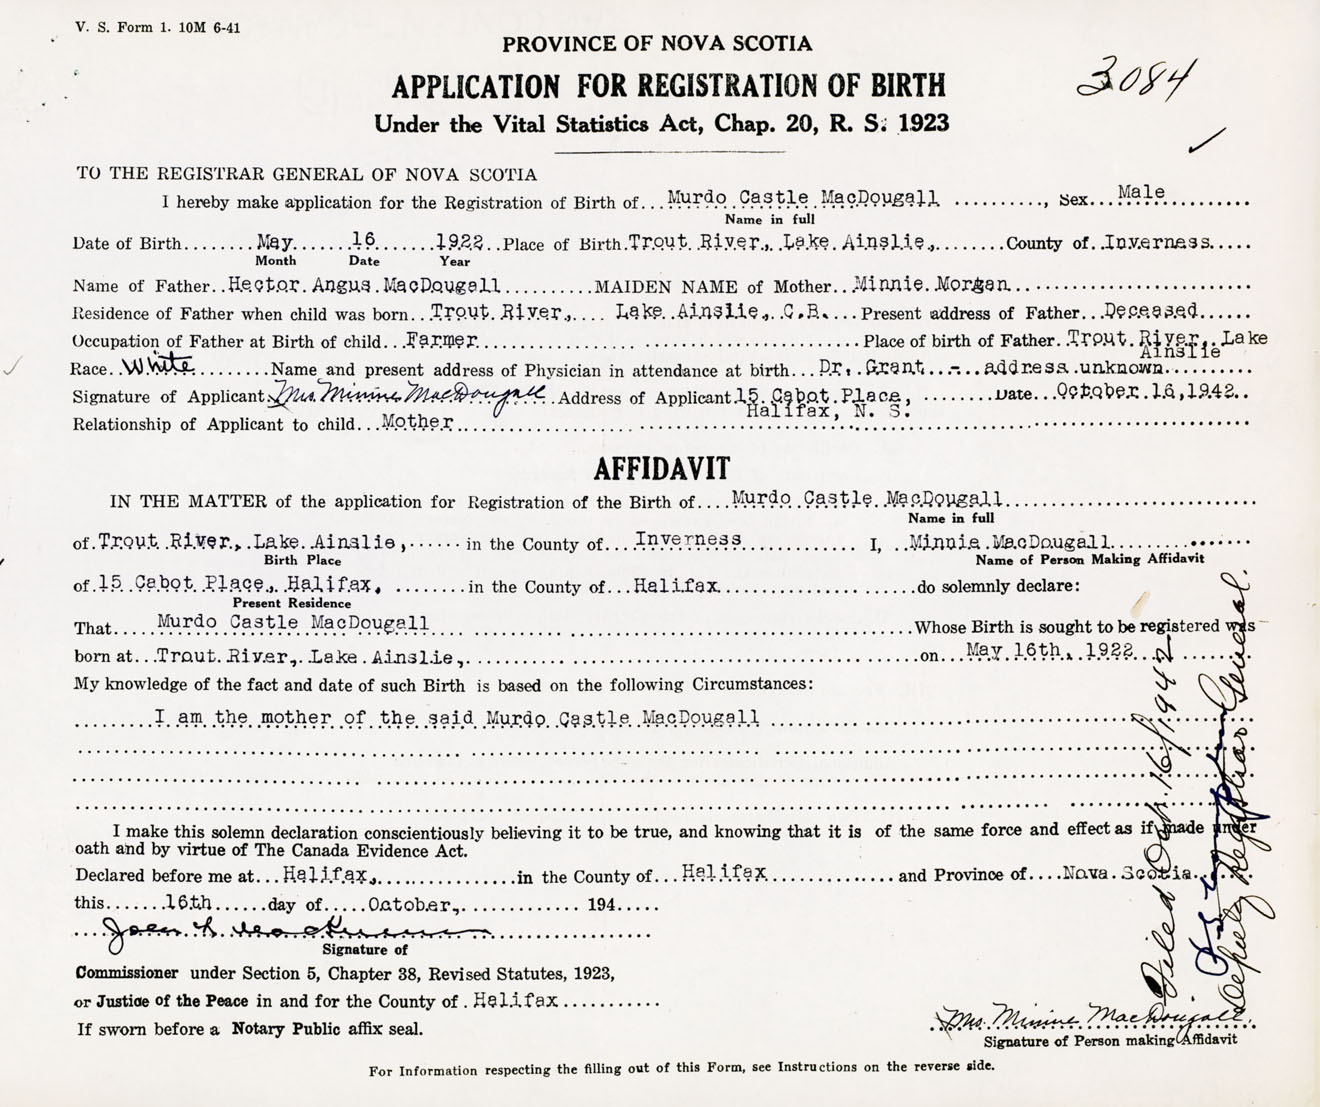 V. S. Form 1. 10M 6-41
PROVINCE OF NOVA SCOTIA
APPLICATION FOR REGISTRATION OF BIRTH
3084
Under the Vital Statistics Act, Chap. 20, R. S. 1923
TO THE REGISTRAR GENERAL OF NOVA SCOTIA
I hereby make application for the Registration of Birth of... Murdo Castle MacDougall .........., Sex... Male
Name in full
Date of Birth........ May...... 16....... 1922.. Place of Birth. Trout River., Lake Ainslie,........ County of.. Inverness.....
Month Date Year
Name of Father.. Hector Angus MacDougall.......... MAIDEN NAME of Mother.. Minnie Morgan
Residence of Father when child was born.. Trout River,.... Lake Ainslie., C.B.... Present address of Father... Deceased......
Occupation of Father at Birth of child... Farmer............ Place of birth of Father.. Trout River, Lake
Ainslie
Race.. White......... Name and present address of Physician in attendance at birth... Dr. Grant...-.. address unknown
Signature of Applicant. Mrs Minnie MacDougall. Address of Applicant. 15 Cabot Place, ........ Date... October 16, 1942..
Halifax, N. S.
Relationship of Applicant to child... Mother
AFFIDAVIT
IN THE MATTER of the application for Registration of the Birth of.... Murdo Castle MacDougall
Name in full
of. Trout River., Lake Ainslie,...... in the County of... Inverness............ I, .. Minnie MacDougall
Birth Place Name of Person Making Affidavit
of. 15 Cabot Place., Halifax, ........ in the County of... Halifax.................. do solemnly declare:
Present Residence
That..... Murdo Castle MacDougall............ Whose Birth is sought to be registered was
born at... Trout River., Lake Ainslie,............ on.... May 16th, 1922
My knowledge of the fact and date of such Birth is based on the following Circumstances:
......... I am the mother of the said Murdo Castle MacDougall
I make this solemn declaration conscientiously believing it to be true, and knowing that it is of the same force and effect as if made under
oath and by virtue of The Canada Evidence Act.
Declared before me at... Halifax,.............. in the County of... Halifax............ and Province of.... Nova Scotia
this...... 16th...... day of..... October,............ 194.....
Signature of
Commissioner under Section 5, Chapter 38, Revised Statutes, 1923,
or Justice of the Peace in and for the County of . Halifax
If sworn before a Notary Public affix seal.
Mrs. Minnie MacDougall.
Signature of Person making Affidavit
For Information respecting the filling out of this Form, see Instructions on the reverse side.
Filed Oct. 16/1942
Deputy Registrar General.